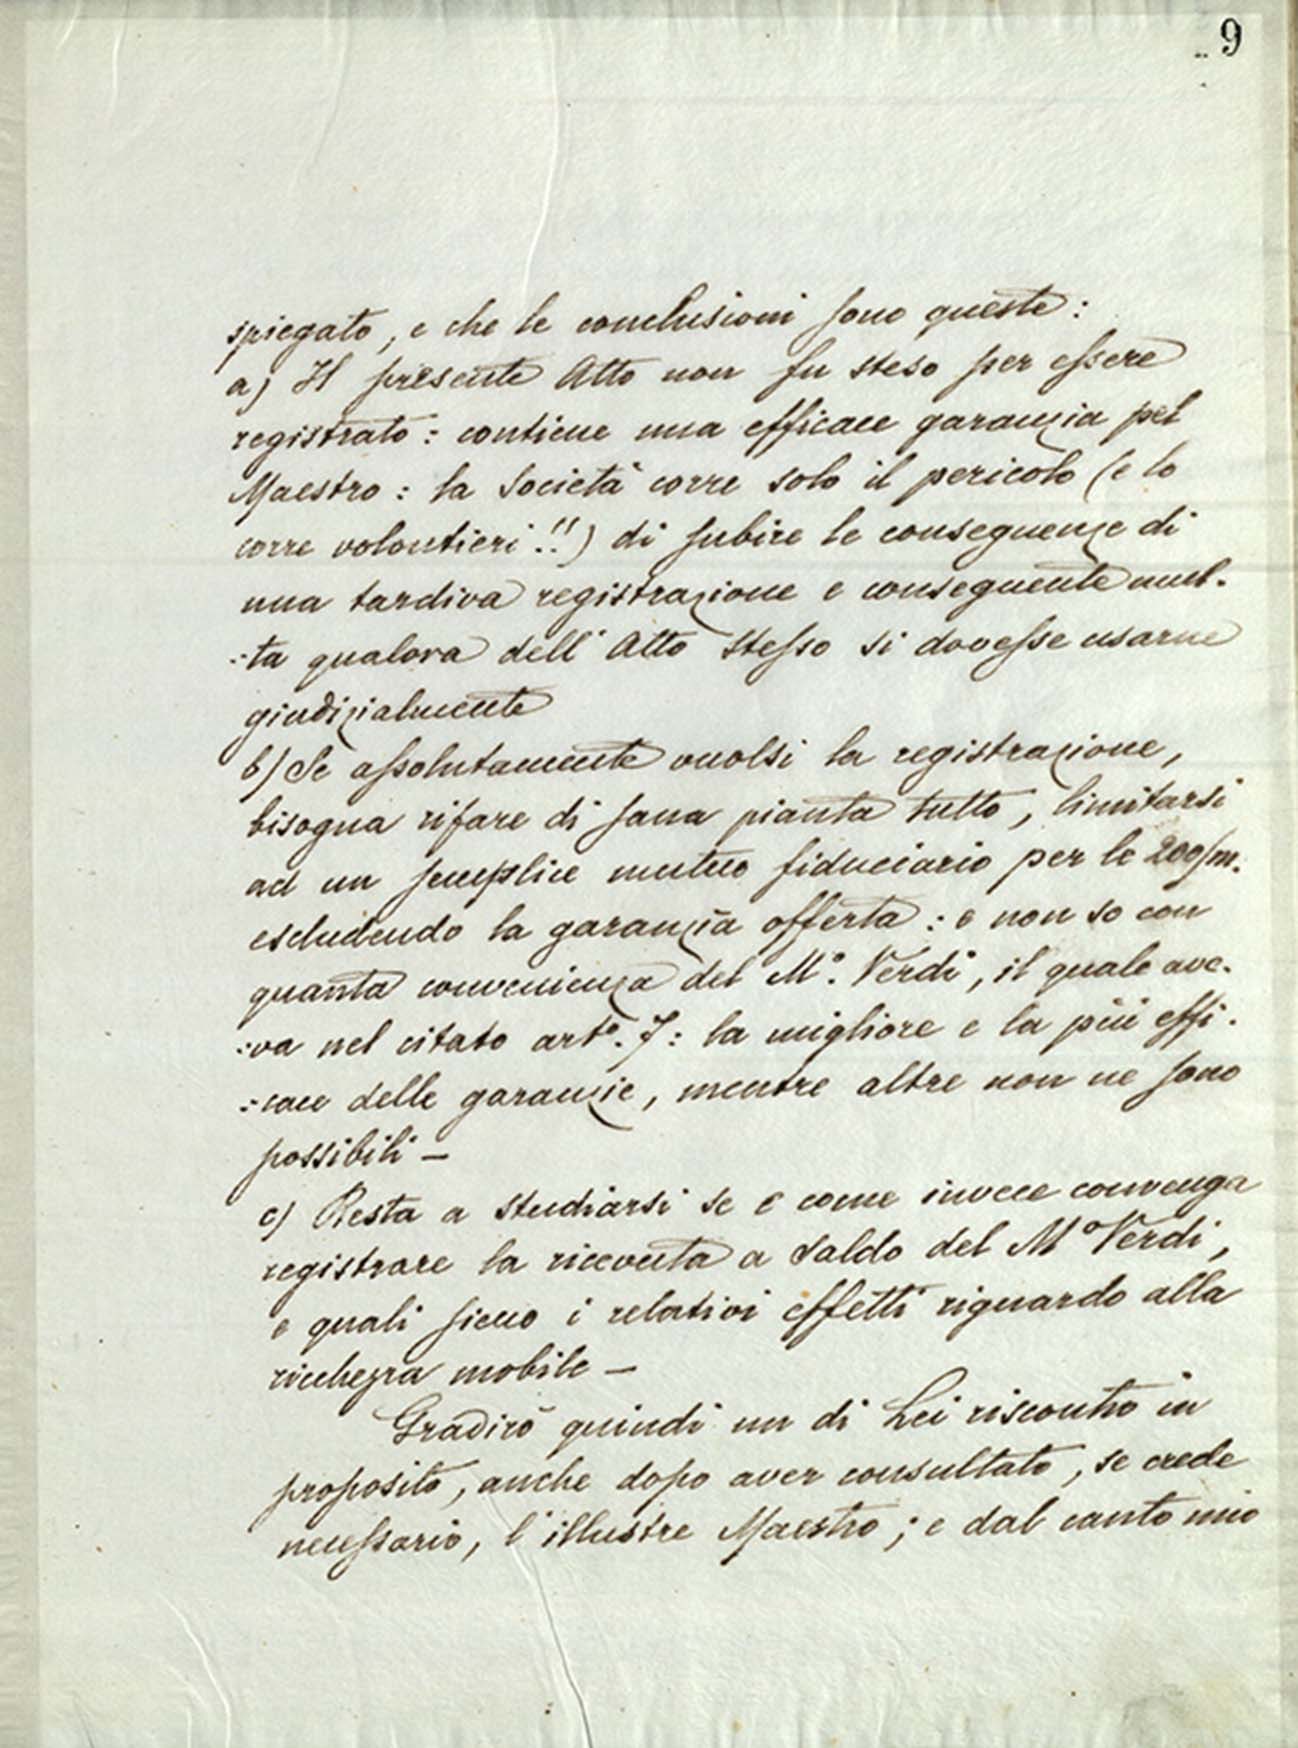 9
spiegato, e che le conclusioni sono queste:
a) Il presente Atto non fu steso per essere
registrato: contiene una efficace garanzia pel
Maestro: la Società corre solo il pericolo (e lo
corre volontieri!!) di subire le conseguenze di
una tardiva registrazione e conseguente mul-
:ta qualora dell'Atto stesso si dovesse usarne
giudizialmente
b) Se assolutamente vuolsi la registrazione,
bisogna rifare di sana pianta tutto, limitarsi
ad un semplice mutuo fiduciario per le 200/m.
escludendo la garanzia offerta: e non so con
quanta convenienza del Mº. Verdi, il quale ave-
:va nel citato artº. 7: la migliore e la più effi-
:cace delle garanzie, mentre altre non ne sono
possibili —
c) Resta a studiarsi se e come invece convenga
registrare la ricevuta a saldo del Mº Verdi,
e quali sieno i relativi effetti riguardo alla
ricchezza mobile —
Gradirò quindi un di Lei riscontro in
proposito, anche dopo aver consultato, se crede
necessario, l'illustre Maestro; e dal canto mio